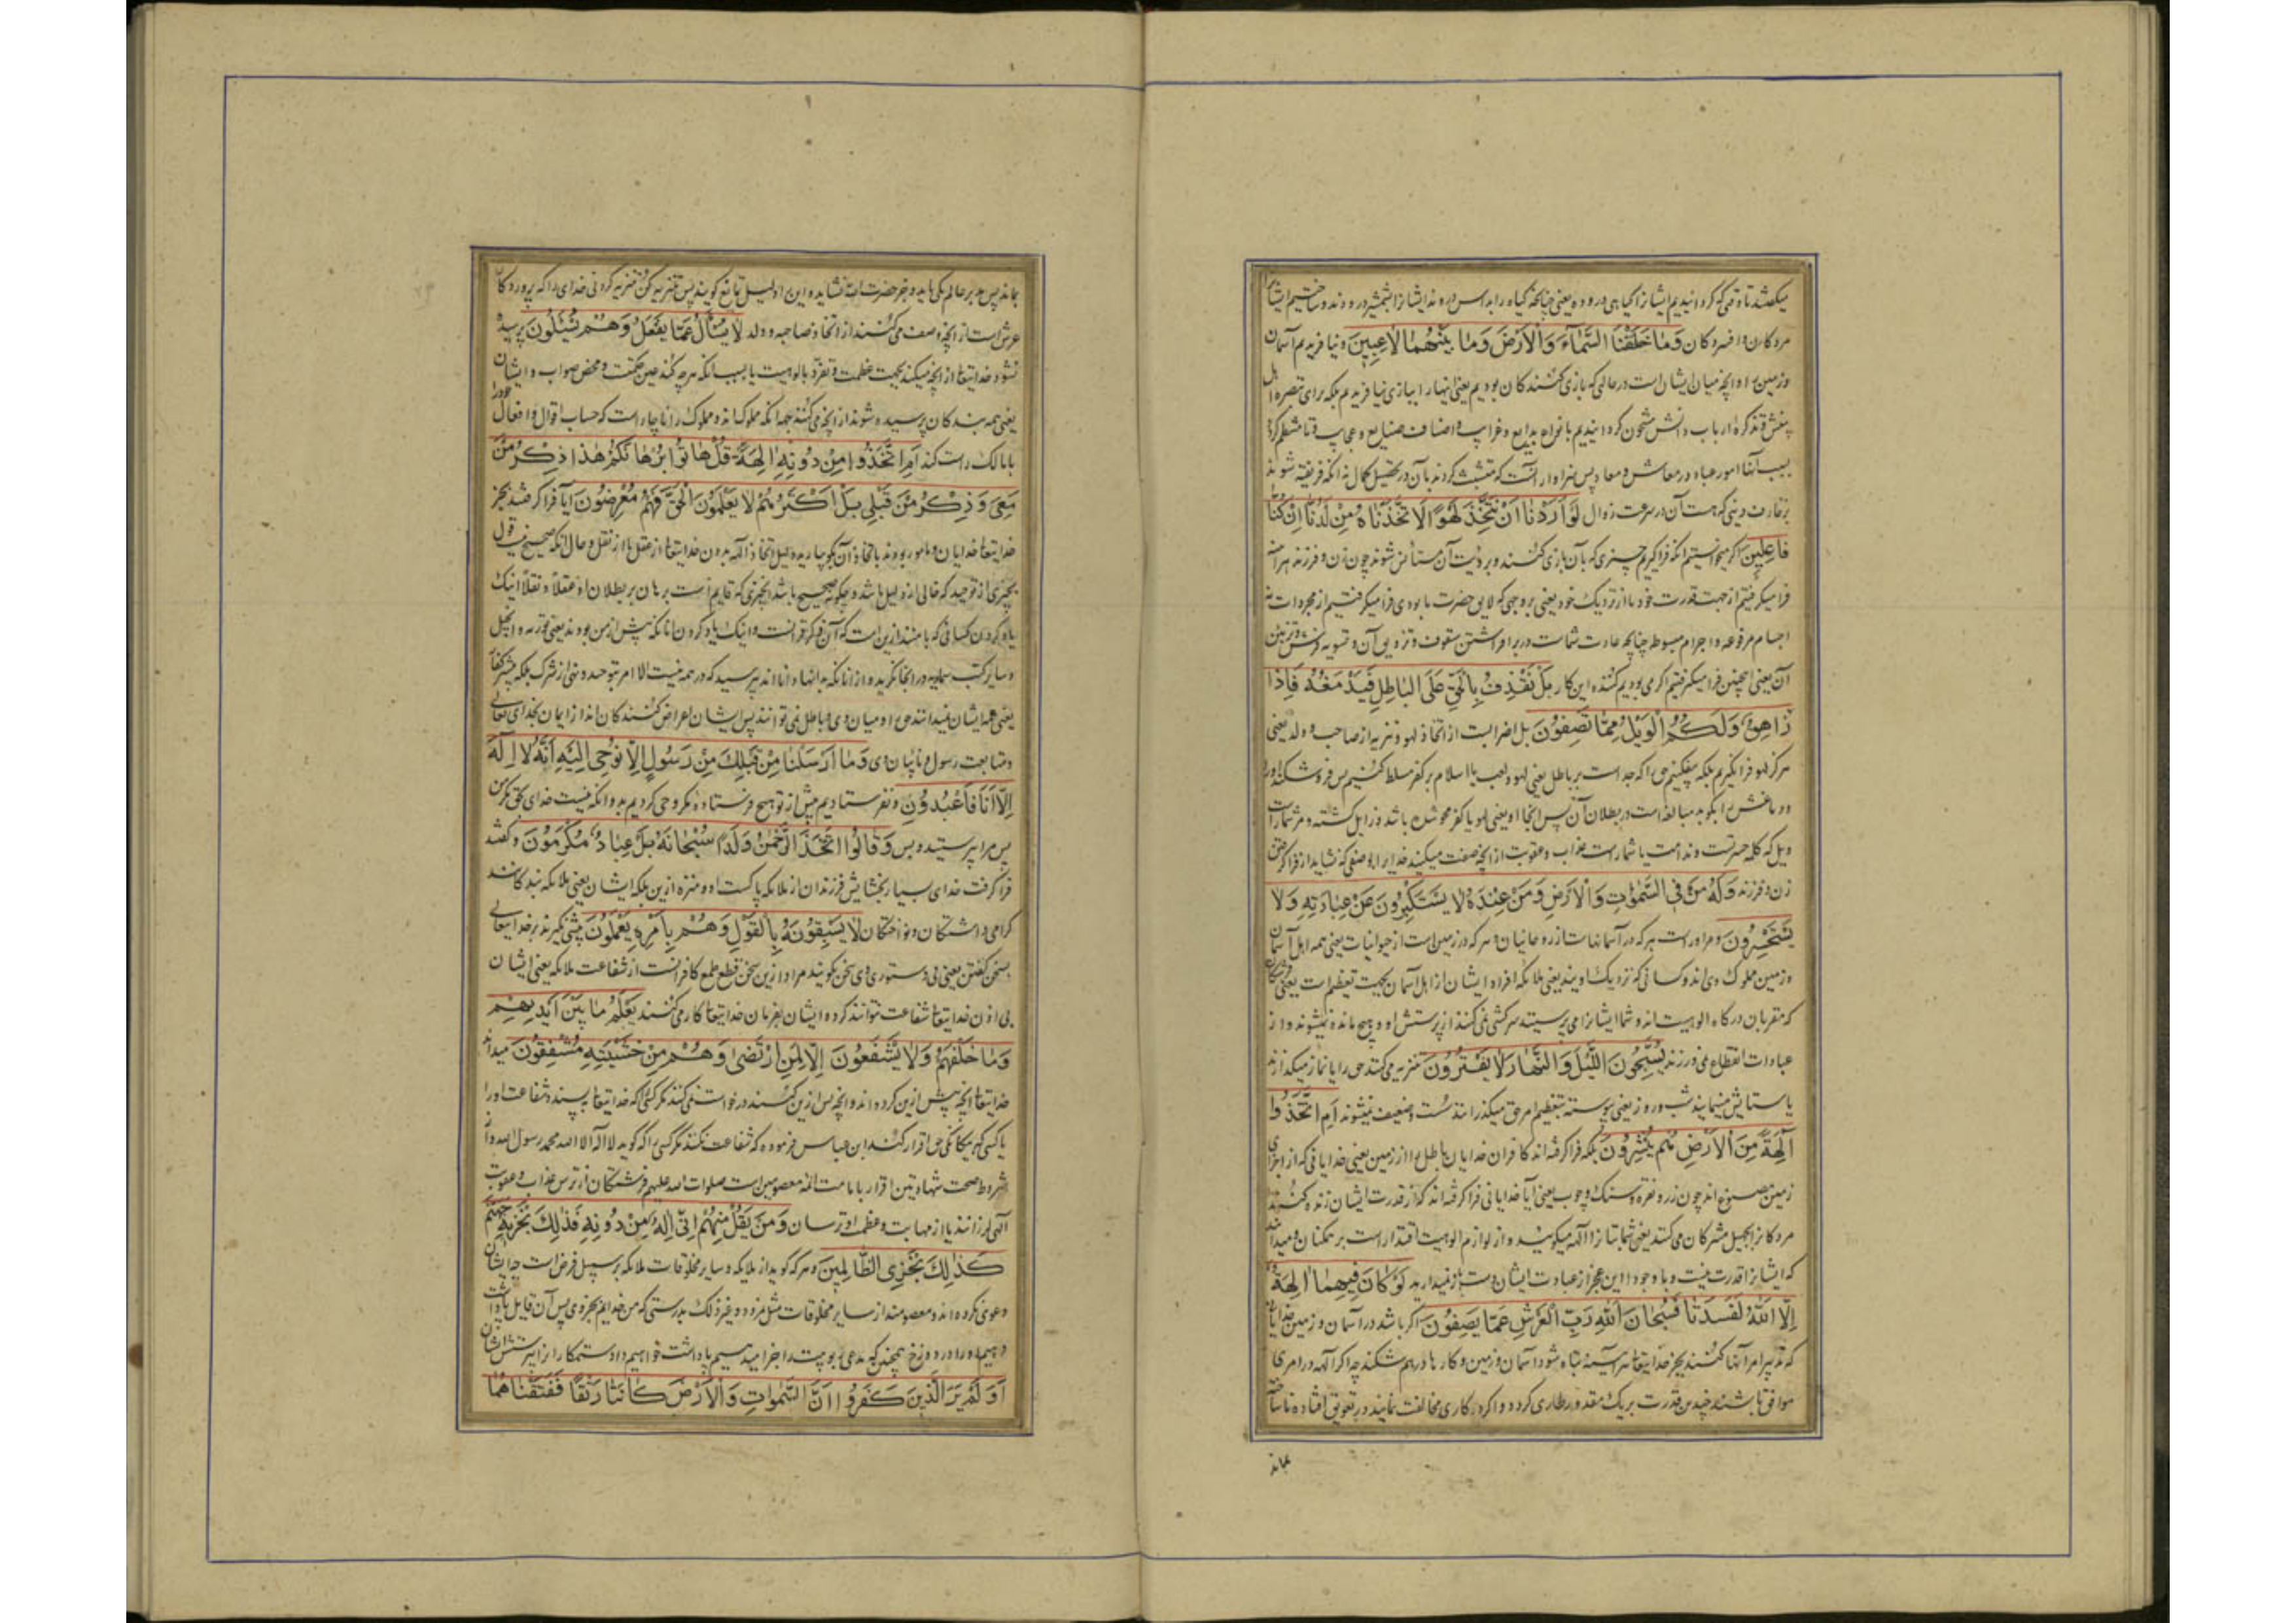 میکفتند تا وقتی که کردانیدیم ایشانرا کیاهی دروده یعنی چنانچه کیاه را بداس دروند ایشانرا بشمشیر درودند و ساختیم ایشانرا
مردکان و افسردکان وَمَا خَلَقْنَا السَّمَآءَ وَالْاَرْضَ وَمَا بَيْنَهُمَا لَاعِبِينَ و نیافریدیم آسمان
و زمین را و آنچه میان ایشان است در حالی که بازی کنندکان بودیم یعنی اینها را ببازی نیافریدیم بلکه برای تبصره اهل
بینش و تذکرهٔ ارباب دانش مشحون کردانیدیم بانواع بدایع و غرایب و اصناف صنایع و عجایب تا منتظم کردد
بسبب آنها امور عباد در معاش و معاد پس سزاوار آنست که متشبث کردند بآن در تحصیل کمال نه آنکه فریفته شوند
بزخارف دنیی که هست آن در سرعت زوال لَوْ اَرَدْنَا اَنْ نَتَّخِذَ لَهْوًا لَاتَّخَذْنَاهُ مِنْ لَدُنَّا اِنْ كُنَّا
فَاعِلِينَ اکر میخواستیم آنکه فراکیریم چیزی که بآن بازی کنند و برؤیت آن مستأنس شوند چون زن و فرزند هر آینه
فرا میکرفتیم از جهت قدرت خود یا از نزدیک خود یعنی بروجهی که لایق حضرت ما بودی فرا میکرفتیم از مجردات نه
اجسام مرفوعه و اجرام مبسوطه چنانچه عادت شماست در برافراشتن سقوف و تزویق آن و تسویه فرش و تزیین
آن یعنی اینچنین فرا میکرفتیم اکر می بودیم کننده این کار بَلْ نَقْذِفُ بِالْحَقِّ عَلَى الْبَاطِلِ فَيَدْمَغُهُ فَاِذَا
زَاهِقٌ وَلَكُمُ الْوَيْلُ مِمَّا تَصِفُونَ بل اضرابست از اتخاذ لهو و تنزیه از صاحب و ولد یعنی
هرکز لهو فرانکیریم بلکه میفکنیم حق را که جد است بر باطل یعنی لهو و لعب یا اسلام بر کفر مسلط کنیم پس فرو شکند او را
و دماغش را بکوبد مبالغه است در بطلان آن پس آنجا او یعنی لهو یا کفر محو شده باشد و زایل کشته و مر شماراست
ویل که کلمه حسرتست و ندامت یا شماراست عذاب و عقوبت از آنچه صفت میکنید خدایرا بدو صفی که نشاید از فراکرفتن
زن و فرزند وَلَهُ مَنْ فِي السَّمٰوَاتِ وَالْاَرْضِ وَمَنْ عِنْدَهُ لَا يَسْتَكْبِرُونَ عَنْ عِبَادَتِهِ وَلَا
يَسْتَحْسِرُونَ و مر اوراست هر که در آسمانهاست از روحانیان و هر که در زمین است از حیوانیات یعنی همه اهل آسمان
و زمین مملوک وی اند و کسانی که نزدیک اویند یعنی ملائکه افراد ایشان از اهل آسمان بجهت تعظیم است یعنی فرشتکان
که مقربان درکاه الوهیت اند و شما ایشانرا می پرستید سرکشی نمی کنند از پرستش او و هیچ مانده نمیشوند و از
عبادات انقطاع نمی ورزند يُسَبِّحُونَ اللَّيْلَ وَالنَّهَارَ لَا يَفْتُرُونَ تنزیه می کنند حق را یا نماز میکذارند
یا ستایش مینمایند شب و روز یعنی پیوسته بتعظیم امر حق میکذرانند سُست و ضعیف نمیشوند اَمِ اتَّخَذُوا
آلِهَةً مِنَ الْاَرْضِ هُمْ يُنْشِرُونَ بلکه فراکرفته اند کافران خدایان باطل را از زمین یعنی خدایانی که از اجزای
زمین مصنوع اند چون زر و نقره و سنک و چوب یعنی آیا خدایانی فراکرفته اند که از قدرت ایشان زنده کنند
مردکانرا تجهیل مشرکان می کند یعنی شما بتانرا آلهه میکویید و از لوازم الوهیت اقتدار است بر ممکنات و میدانند
که ایشانرا قدرت نیست و با وجود این عجز از عبادت ایشان دست باز نمیدارید لَوْ كَانَ فِيهِمَا آلِهَةٌ
اِلَّا اللّٰهُ لَفَسَدَتَا فَسُبْحَانَ اللّٰهِ رَبِّ الْعَرْشِ عَمَّا يَصِفُونَ اکر باشد در آسمان و زمین خدایان
که تدبیر امر آنها کنند بجز خدایتعالی هر آینه تباه شود آسمان و زمین و کارها درهم شکند چه اکر آلهه در امری
موافق باشند چندین قدرت بر یک مقدور طاری کردد و اکر در کاری مخالفت نمایند در تعویق افتاده ناساخته
بماند
بماند پس مدبر عالم یکی باید و جز حضرت الله نشاید و این را دلیل تمانع کویند پس تنزیه کن تنزیه کردنی خدای را که پروردکار
عرش است از آنچه وصف می کنند از اتخاذ صاحبه و ولد لَا يُسْأَلُ عَمَّا يَفْعَلُ وَهُمْ يُسْئَلُونَ پرسیده
نشود خدایتعالی از آنچه میکند بجهت عظمت و تفرد بالوهیت یا بسبب آنکه هر چه کند عین حکمت و محض صواب و ایشان
یعنی همه بندکان پرسیده شوند از آنچه می کنند جهة آنکه مملوک اند و مملوک را ناچار است که حساب اقوال و افعال خود را
با مالک راست کند اَمِ اتَّخَذُوا مِنْ دُونِهِ آلِهَةً قُلْ هَاتُوا بُرْهَانَكُمْ هٰذَا ذِكْرُ مَنْ
مَعِيَ وَذِكْرُ مَنْ قَبْلِي بَلْ اَكْثَرُهُمْ لَا يَعْلَمُونَ الْحَقَّ فَهُمْ مُعْرِضُونَ آیا فراکرفتند بجز
خدایتعالی خدایان و مامور بودند باتخاذ آن بکو بیارید دلیل اتخاذ آلهه بدون خدایتعالی از عقل یا از نقل و حال آنکه صحیح نیست قول
بچیزی از توحید که خالی از دلیل باشد و چکونه صحیح باشد آنچیزی که قایم است برهان بر بطلان او عقلا و نقلا اینک
یاد کردن کسانی که با منند از این امت که آن ذکر قرآنست و اینک یاد کردن آنانکه پیش از من بودند یعنی توریه و انجیل
و سایر کتب سماویه در آنجا نکرید و از آنانکه بدانها دانااند بپرسید که در همه نیست الا امر بتوحید و نهی از شرک بلکه بیشتر کفار
یعنی همه ایشان نمیدانند حق را و میان وی و باطل تمیز نمی توانند پس ایشان اعراض کنندکان اند از ایمان بخدای تعالی
و متابعت رسول و نایبان وی وَمَا اَرْسَلْنَا مِنْ قَبْلِكَ مِنْ رَسُولٍ اِلَّا نُوحِي اِلَيْهِ اَنَّهُ لَا اِلٰهَ
اِلَّا اَنَا فَاعْبُدُونِ و نفرستادیم پیش از تو هیچ فرستاده مکر وحی کردیم بدو آنکه نیست خدای بحق مکر من
پس مرا پرستیدە بس وَقَالُوا اتَّخَذَ الرَّحْمٰنُ وَلَدًا سُبْحَانَهُ بَلْ عِبَادٌ مُكْرَمُونَ و کفتند
فراکرفت خدای بسیار بخشایش فرزندان از ملائکه پاکست او و منزه از این بلکه ایشان یعنی ملائکه بندکانند
کرامی داشتکان و نواختکان لَا يَسْبِقُونَهُ بِالْقَوْلِ وَهُمْ بِاَمْرِهِ يَعْمَلُونَ پیشی نکیرند بر خدایتعالی
بسخن کفتن یعنی بی دستوری وی سخن نکویند مراد از این سخن قطع طمع کافرانست از شفاعت ملائکه یعنی ایشان
بی اذن خدایتعالی شفاعت نتوانند کرد و ایشان بفرمان خدایتعالی کار می کنند يَعْلَمُ مَا بَيْنَ اَيْدِيهِمْ
وَمَا خَلْفَهُمْ وَلَا يَشْفَعُونَ اِلَّا لِمَنِ ارْتَضٰى وَهُمْ مِنْ خَشْيَتِهِ مُشْفِقُونَ میداند
خدایتعالی آنچه پیش از این کرده اند و آنچه پس از این کنند و درخواست نمی کنند مکر کسی را که خدایتعالی بپسندد شفاعت او را
یا کسی که بیکانکی حق اقرار کند ابن عباس فرموده که شفاعت نکنند مکر کسی را که کوید لا اله الا الله محمد رسول الله و از
شروط صحت شهادتین اقرار بامامت ائمه معصومین است صلوات الله علیهم و فرشتکان از ترس عذاب و عقوبت
الهی لرزانند یا از مهابت و عظمت او ترسان وَمَنْ يَقُلْ مِنْهُمْ اِنِّي اِلٰهٌ مِنْ دُونِهِ فَذٰلِكَ نَجْزِيهِ جَهَنَّمَ
كَذٰلِكَ نَجْزِي الظَّالِمِينَ و هر که کوید از ملائکه و سایر مخلوقات ملائکه بر سبیل فرض است چه ایشان
دعوی نکرده اند و معصومند از سایر مخلوقات مثل نمرود و غیر ذلک بدرستی که من خدایم بجز وی پس آن قایل پاداش
دهیم او را در دوزخ همچنین که مدعی ربوبیت را جزا میدهیم پاداشت خواهیم داد ستمکارانرا بپرستش ایشان
اَوَلَمْ يَرَ الَّذِينَ كَفَرُوا اَنَّ السَّمٰوَاتِ وَالْاَرْضَ كَانَتَا رَتْقًا فَفَتَقْنَاهُمَا